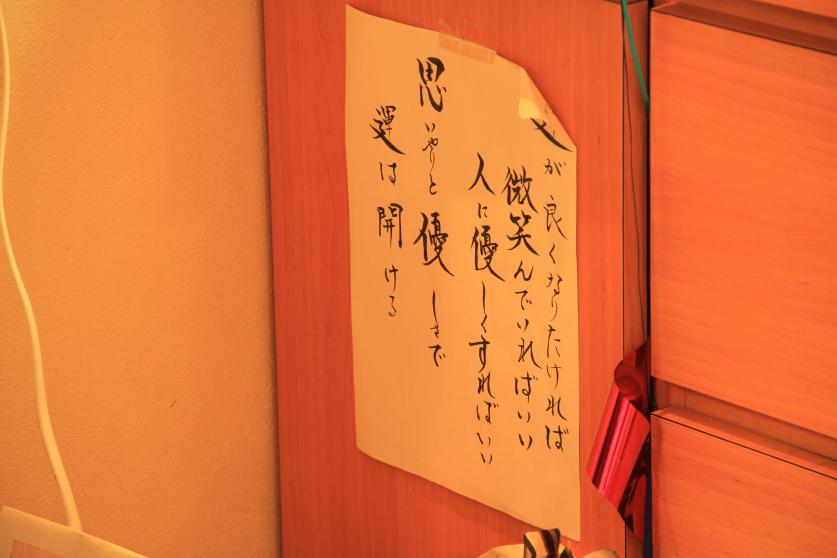 が良くなりたければ
微笑んでいればいい
人に優しくすればいい
思いやりと優しさで
運は開ける